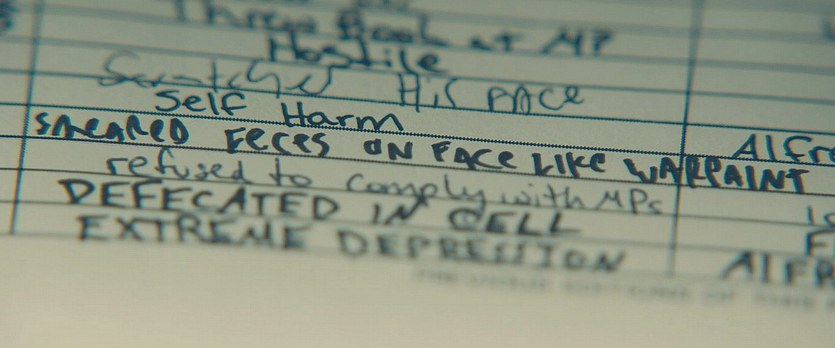 Threw Book at MP
Hostile
Scratched His FACE
Self Harm
SMEARED FECES ON FACE LIKE WARPAINT Alfre
refused to comply with MPs
DEFECATED IN CELL
EXTREME DEPRESSION AlFR